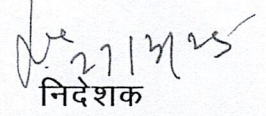 27/3/25
निदेशक